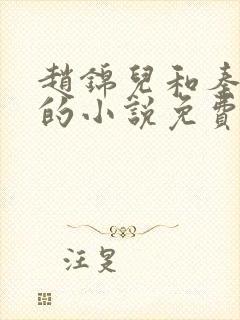 趙錦兒和秦
的小說免費
汪旻